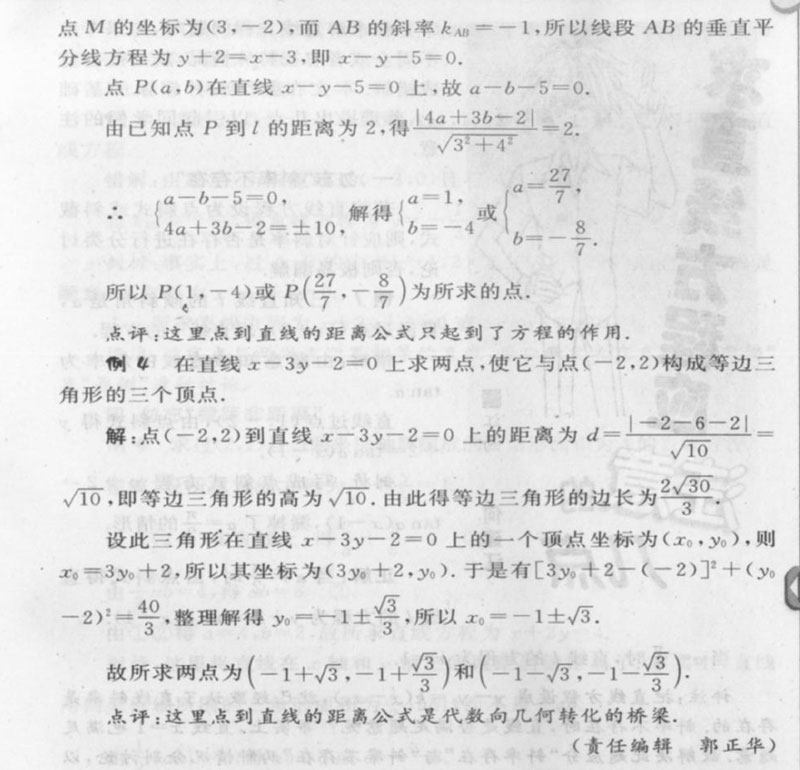 点 M 的坐标为(3,－2),而 AB 的斜率 k_AB＝－1,所以线段 AB 的垂直平
分线方程为 y＋2＝x－3,即 x－y－5＝0.
点 P(a,b)在直线 x－y－5＝0 上,故 a－b－5＝0.
由已知点 P 到 l 的距离为 2,得|4a＋3b－2|/√(3²＋4²)＝2.
∴ {a－b－5＝0, 4a＋3b－2＝±10, 解得{a＝1, b＝－4 或{a＝27/7, b＝－8/7.
所以 P(1,－4)或 P(27/7,－8/7)为所求的点.
点评:这里点到直线的距离公式只起到了方程的作用.
例 4 在直线 x－3y－2＝0 上求两点,使它与点(－2,2)构成等边三
角形的三个顶点.
解:点(－2,2)到直线 x－3y－2＝0 上的距离为 d＝|－2－6－2|/√10＝
√10,即等边三角形的高为√10.由此得等边三角形的边长为2√30/3.
设此三角形在直线 x－3y－2＝0 上的一个顶点坐标为(x₀,y₀),则
x₀＝3y₀＋2,所以其坐标为(3y₀＋2,y₀).于是有[3y₀＋2－(－2)]²＋(y₀
－2)²＝40/3,整理解得 y₀＝－1±√3/3,所以 x₀＝－1±√3.
故所求两点为(－1＋√3,－1＋√3/3)和(－1－√3,－1－√3/3).
点评:这里点到直线的距离公式是代数向几何转化的桥梁.
(责任编辑 郭正华)